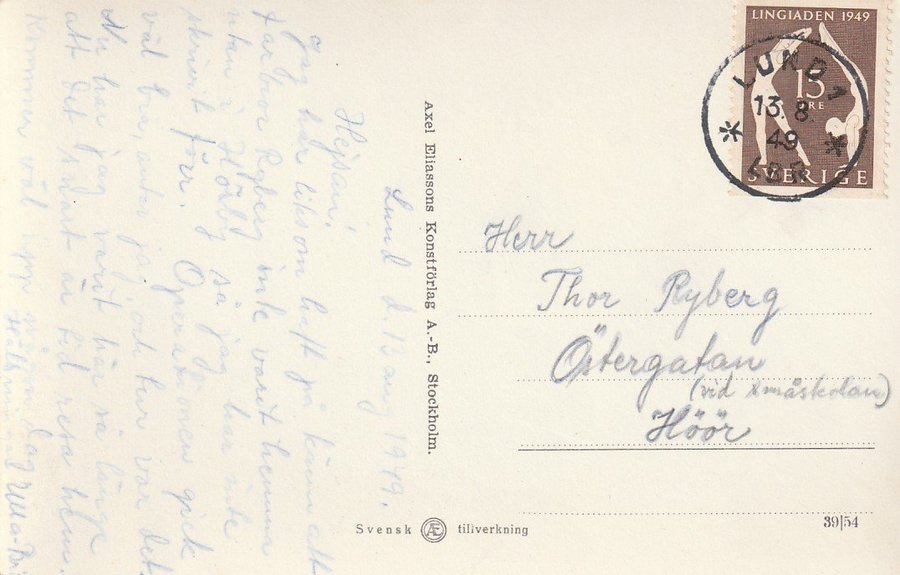 Lund d. 13 aug 1949.
Hejsan!
Jag har liksom haft på känn att
farbror Ryberg inte varit hemma
utan i Hörby så jag har inte
skrivit förr. Operationen gick
väl bra, antar jag, och tur var det.
Nu har jag varit här så länge
att det snart är tid resa hem.
Kommer väl upp någon dag
Ulla-
Axel Eliassons Konstförlag A.-B., Stockholm.
LINGIADEN 1949
15
ÖRE
SVERIGE
LUND 1
13. 8.
49
LBR
Herr
Thor Ryberg
Östergatan
(vid småskolan)
Höör
Svensk Æ tillverkning
39/54